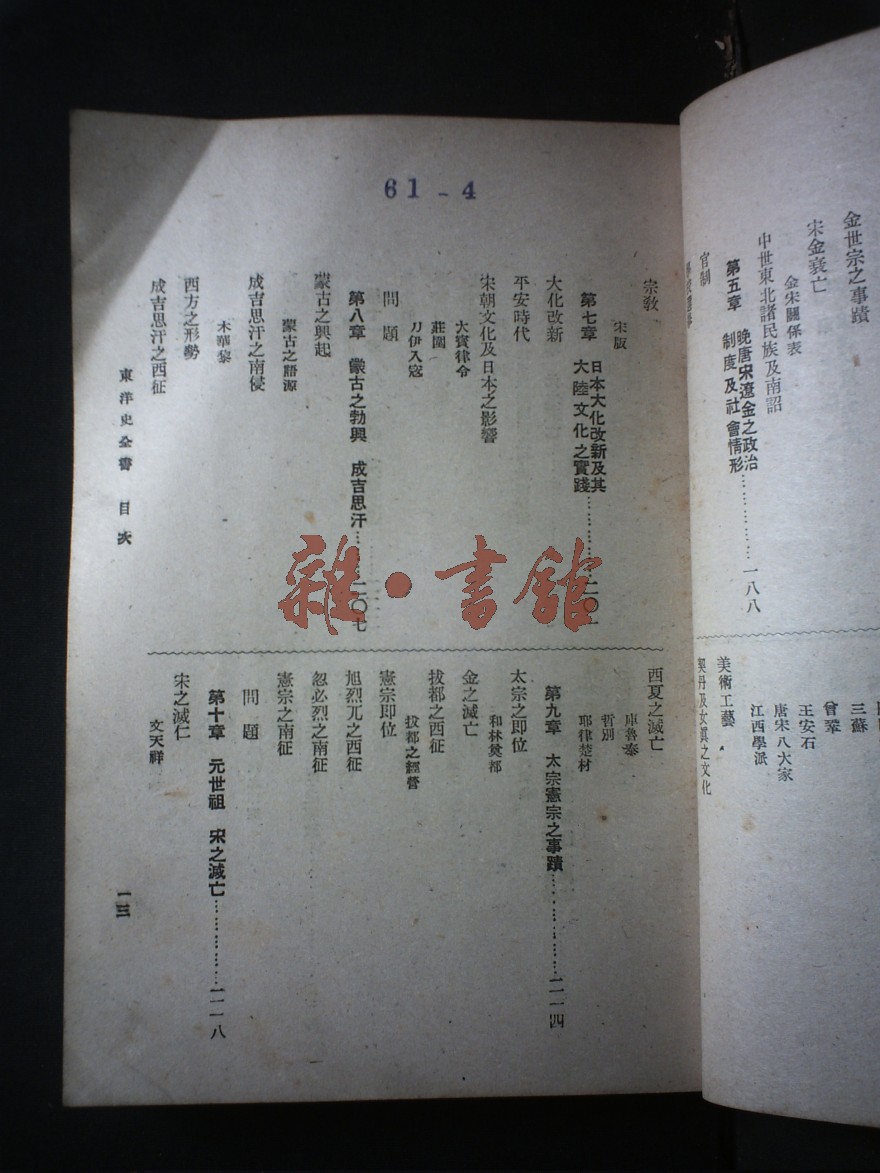 金世宗之事蹟
宋金衰亡
金宋關係表
中世東北諸民族及南詔
第五章 晚唐宋遼金之政治
制度及社會情形……………一八八
官制
三蘇
曾鞏
王安石
唐宋八大家
江西學派
美術工藝
契丹及女眞之文化
61-4
宗教
宋版
第七章 日本大化改新及其
大陸文化之實踐……………二〇一
大化改新
平安時代
宋朝文化及日本之影響
大寶律令
莊園
刀伊入寇
問題
第八章 蒙古之勃興 成吉思汗……二〇七
蒙古之興起
蒙古之語源
成吉思汗之南侵
木華黎
西方之形勢
成吉思汗之西征
西夏之滅亡
庫魯泰
哲別
耶律楚材
第九章 太宗憲宗之事蹟……………二一四
太宗之即位
和林奠都
金之滅亡
拔都之西征
拔都之經營
憲宗即位
旭烈兀之西征
忽必烈之南征
憲宗之南征
問題
第十章 元世祖 宋之滅亡……………二一八
宋之滅仁
文天祥
東洋史全書 目次
一三
雜·書館